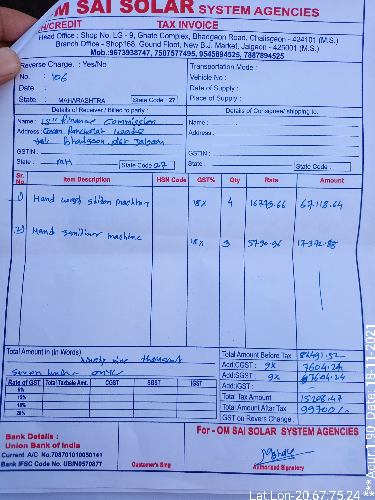 OM SAI SOLAR SYSTEM AGENCIES
H/CREDIT TAX INVOICE
Head Office : Shop No. LG - 9, Ghate Complex, Bhadgaon Road, Chalisgaon - 424101 (M.S.)
Branch Office - Shop168, Gound Floor, New B.J. Market, Jalgaon - 425001 (M.S.)
Mob.:9673938747, 7507577495, 9545694525, 7887894525
Reverse Charge. : Yes/No
Transportation Mode :
No. : 106
Vehicle No :
Date :
Date of Supply :
State : MAHARASHTRA State Code : 27
Place of Supply :
Details of Receiver / Billed to party :
Details of Consignee/ shipping to.
Name : 15th Finance Commission
Name :
Address :
Address :
GSTIN :
GSTIN :
State : MH State Code : 27
State : State Code :
Sr. No. Item Description HSN Code GST% Qty Rate Amount
1) Hand wash station machine 18% 4 16779.66 67118.64
2) Hand sanitizer machine 18% 3 5790.96 17372.88
Total Amount in (In Words) ninety nine thousand
seven hundred only
Total Amount Before Tax 84491.52
Add:CGST : 9% 7604.24
Add:SGST : 9% 7604.24
Add:IGST :
Total Tax Amount 15208.47
Total Amount After Tax 99700/-
GST on Revers Charge
Rate of GST Total Taxbale Amt. CGST SGST IGST
5%
12%
18%
28%
Bank Details :
Union Bank of India
Current A/C No.708701010050141
Bank IFSC Code No. UBIN0570877
Customer's Sing
For - OM SAI SOLAR SYSTEM AGENCIES
Authorised Signatory
Lat:Lon-20.67:75.24
Acu:1.90 Date:18-11-2021